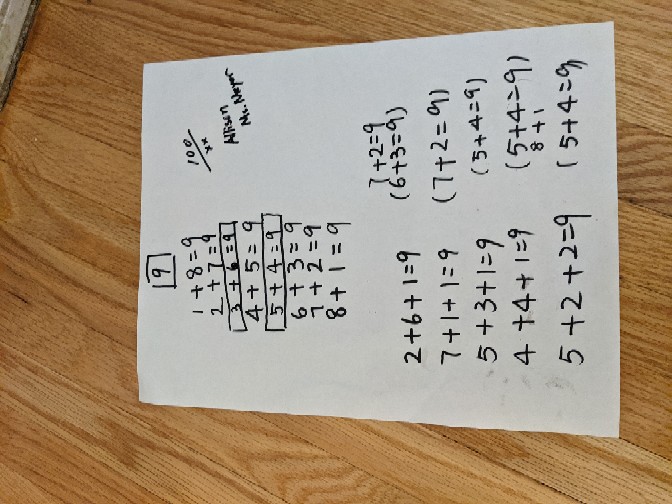 9
100
xx
Allison
1 + 8 = 9
2 + 7 = 9
3 + 6 = 9
4 + 5 = 9
5 + 4 = 9
6 + 3 = 9
7 + 2 = 9
8 + 1 = 9
7+2=9
2+6+1=9 (6+3=9)
7+1+1=9 (7+2=9)
5+3+1=9 (5+4=9)
4+4+1=9 (5+4=9)
8+1
5+2+2=9 (5+4=9)